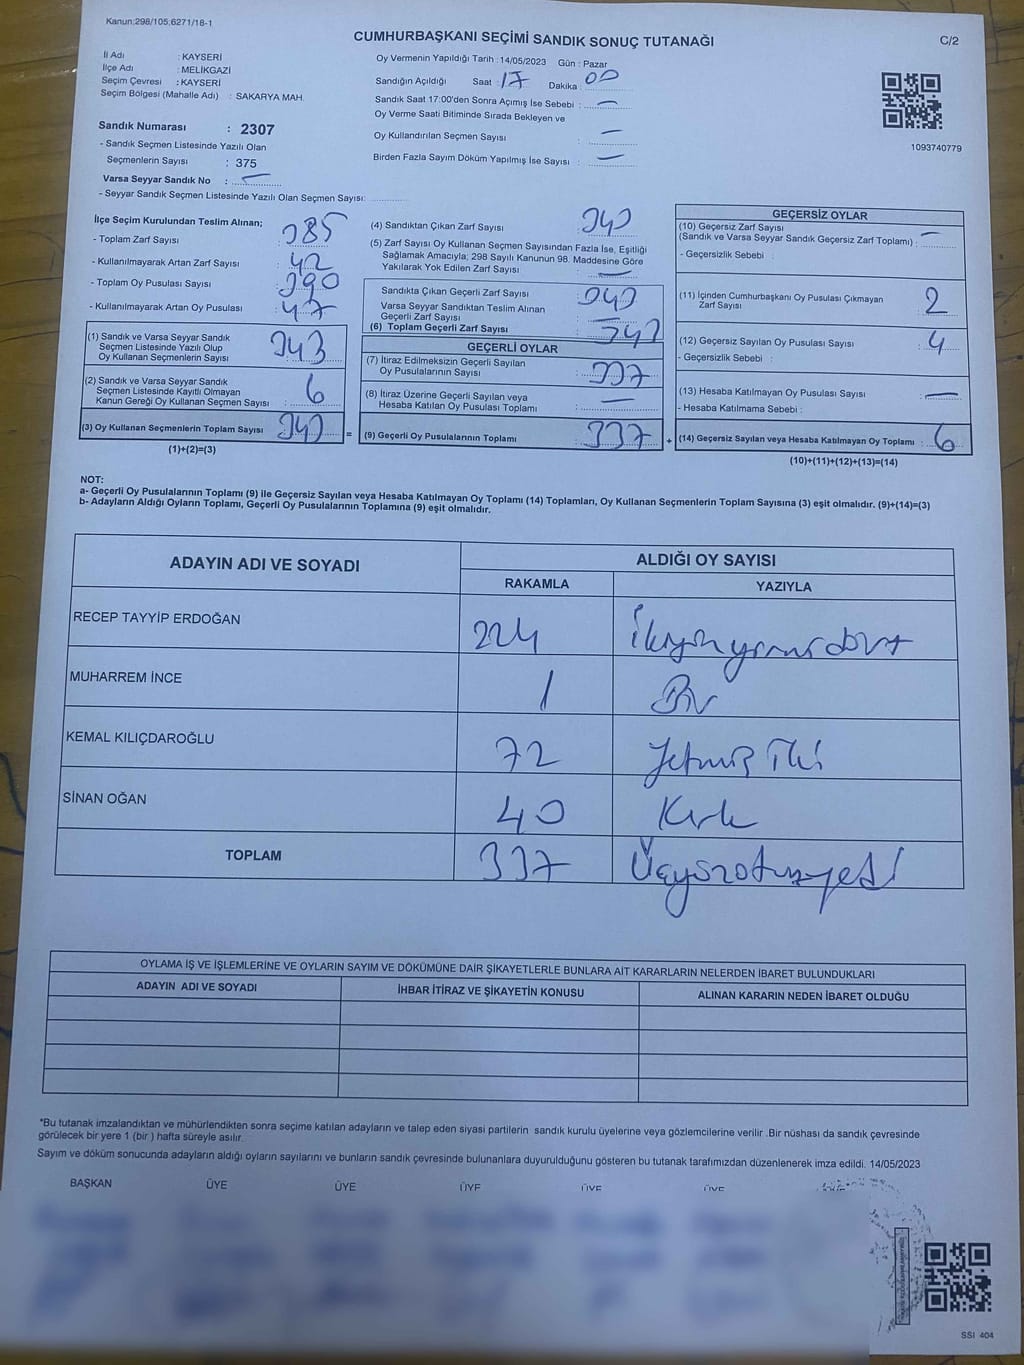 Kanun:298/105;6271/18-1
CUMHURBAŞKANI SEÇİMİ SANDIK SONUÇ TUTANAĞI
C/2
İl Adı : KAYSERİ
İlçe Adı : MELİKGAZİ
Seçim Çevresi : KAYSERİ
Seçim Bölgesi (Mahalle Adı) : SAKARYA MAH.
Sandık Numarası : 2307
- Sandık Seçmen Listesinde Yazılı Olan
Seçmenlerin Sayısı : 375
Varsa Seyyar Sandık No : —
- Seyyar Sandık Seçmen Listesinde Yazılı Olan Seçmen Sayısı:
Oy Vermenin Yapıldığı Tarih : 14/05/2023 Gün : Pazar
Sandığın Açıldığı Saat : 17 Dakika : 00
Sandık Saat 17:00'den Sonra Açımış İse Sebebi : —
Oy Verme Saati Bitiminde Sırada Bekleyen ve
Oy Kullandırılan Seçmen Sayısı : —
Birden Fazla Sayım Döküm Yapılmış İse Sayısı : —
1093740779
İlçe Seçim Kurulundan Teslim Alınan;
- Toplam Zarf Sayısı : 385
- Kullanılmayarak Artan Zarf Sayısı : 42
- Toplam Oy Pusulası Sayısı : 390
- Kullanılmayarak Artan Oy Pusulası : 47
(1) Sandık ve Varsa Seyyar Sandık
Seçmen Listesinde Yazılı Olup
Oy Kullanan Seçmenlerin Sayısı : 343
(2) Sandık ve Varsa Seyyar Sandık
Seçmen Listesinde Kayıtlı Olmayan
Kanun Gereği Oy Kullanan Seçmen Sayısı : 6
(3) Oy Kullanan Seçmenlerin Toplam Sayısı : 343
(1)+(2)=(3)
(4) Sandıktan Çıkan Zarf Sayısı : 343
(5) Zarf Sayısı Oy Kullanan Seçmen Sayısından Fazla İse, Eşitliği
Sağlamak Amacıyla; 298 Sayılı Kanunun 98. Maddesine Göre
Yakılarak Yok Edilen Zarf Sayısı : —
Sandıkta Çıkan Geçerli Zarf Sayısı : 343
Varsa Seyyar Sandıktan Teslim Alınan
Geçerli Zarf Sayısı :
(6) Toplam Geçerli Zarf Sayısı : 343
GEÇERLİ OYLAR
(7) İtiraz Edilmeksizin Geçerli Sayılan
Oy Pusulalarının Sayısı : 337
(8) İtiraz Üzerine Geçerli Sayılan veya
Hesaba Katılan Oy Pusulası Toplamı : —
= (9) Geçerli Oy Pusulalarının Toplamı : 337
GEÇERSİZ OYLAR
(10) Geçersiz Zarf Sayısı
(Sandık ve Varsa Seyyar Sandık Geçersiz Zarf Toplamı) : —
- Geçersizlik Sebebi :
(11) İçinden Cumhurbaşkanı Oy Pusulası Çıkmayan
Zarf Sayısı : 2
(12) Geçersiz Sayılan Oy Pusulası Sayısı : 4
- Geçersizlik Sebebi :
(13) Hesaba Katılmayan Oy Pusulası Sayısı : —
- Hesaba Katılmama Sebebi :
+ (14) Geçersiz Sayılan veya Hesaba Katılmayan Oy Toplamı : 6
(10)+(11)+(12)+(13)=(14)
NOT:
a- Geçerli Oy Pusulalarının Toplamı (9) ile Geçersiz Sayılan veya Hesaba Katılmayan Oy Toplamı (14) Toplamları, Oy Kullanan Seçmenlerin Toplam Sayısına (3) eşit olmalıdır. (9)+(14)=(3)
b- Adayların Aldığı Oyların Toplamı, Geçerli Oy Pusulalarının Toplamına (9) eşit olmalıdır.
ADAYIN ADI VE SOYADI
ALDIĞI OY SAYISI
RAKAMLA YAZIYLA
RECEP TAYYİP ERDOĞAN 224 İkiyüzyirmidört
MUHARREM İNCE 1 Bir
KEMAL KILIÇDAROĞLU 72 Yetmiş İki
SİNAN OĞAN 40 Kırk
TOPLAM 337 Üçyüzotuzyedi
OYLAMA İŞ VE İŞLEMLERİNE VE OYLARIN SAYIM VE DÖKÜMÜNE DAİR ŞİKAYETLERLE BUNLARA AİT KARARLARIN NELERDEN İBARET BULUNDUKLARI
ADAYIN ADI VE SOYADI İHBAR İTİRAZ VE ŞİKAYETİN KONUSU ALINAN KARARIN NEDEN İBARET OLDUĞU
*Bu tutanak imzalandıktan ve mühürlendikten sonra seçime katılan adayların ve talep eden siyasi partilerin sandık kurulu üyelerine veya gözlemcilerine verilir .Bir nüshası da sandık çevresinde
görülecek bir yere 1 (bir ) hafta süreyle asılır.
Sayım ve döküm sonucunda adayların aldığı oyların sayılarını ve bunların sandık çevresinde bulunanlara duyurulduğunu gösteren bu tutanak tarafımızdan düzenlenerek imza edildi. 14/05/2023
BAŞKAN ÜYE ÜYE ÜYE ÜYE ÜYE
SSI 404